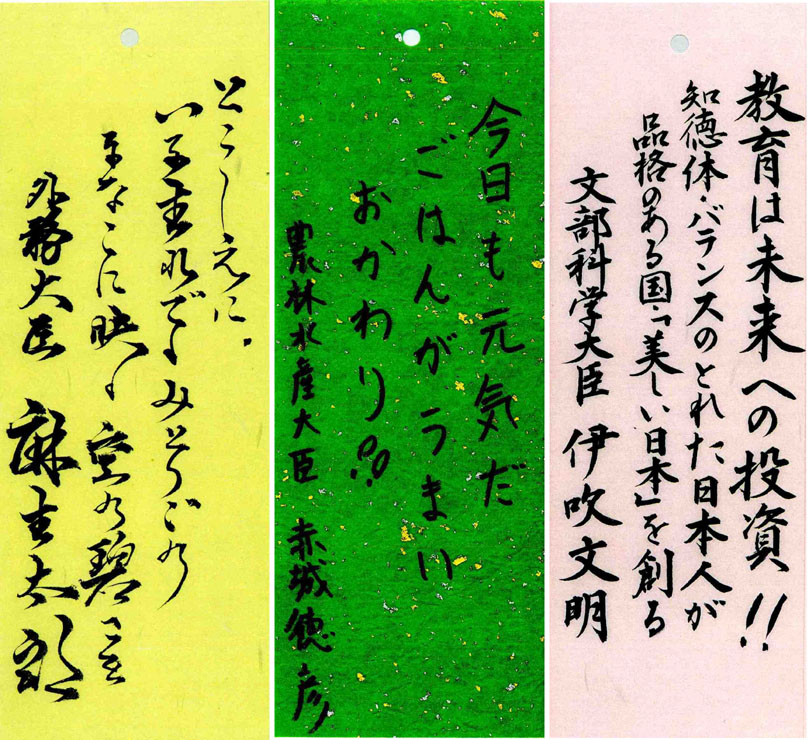 教育は未来への投資!!
知徳体・バランスのとれた日本人が
品格のある国「美しい日本」を創る
文部科学大臣 伊吹文明
今日も元気だ
ごはんがうまい
おかわり!!
農林水産大臣 赤城徳彦
とこしえに
みどりごの
まなこに映る 空の碧さを
外務大臣 麻生太郎